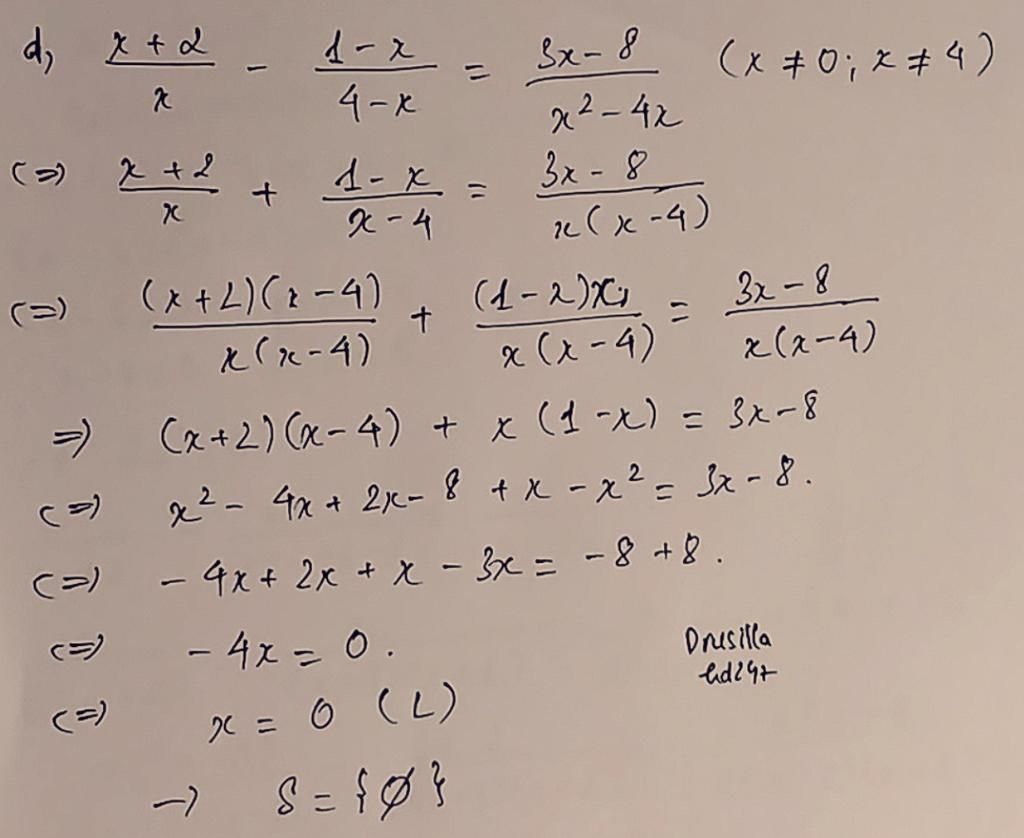 d, (x+2)/x - (1-x)/(4-x) = (3x-8)/(x²-4x) (x ≠ 0; x ≠ 4)
<=> (x+2)/x + (1-x)/(x-4) = (3x-8)/(x(x-4))
<=> ((x+2)(x-4))/(x(x-4)) + ((1-x)x)/(x(x-4)) = (3x-8)/(x(x-4))
=> (x+2)(x-4) + x(1-x) = 3x-8
<=> x² - 4x + 2x - 8 + x - x² = 3x - 8.
<=> - 4x + 2x + x - 3x = -8 + 8.
<=> - 4x = 0.
Drusilla
hd247
<=> x = 0 (L)
→ S = {Ø}